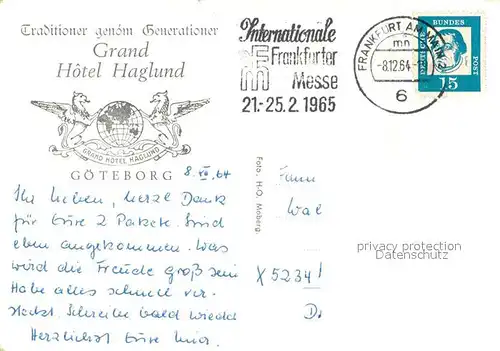 Traditioner genom Generationer
Grand
Hôtel Haglund
GRAND HÔTEL HAGLUND
GÖTEBORG
8. XII. 64
Ihr Lieben, herzl. Dank
für Eure 2 Pakete. Sind
eben angekommen. Was
wird die Freude groß sein
Habe alles schnell ver-
steckt. Schreibe bald wieder
Herzlichst Eure
Internationale
Frankfurter
Messe
21.-25. 2. 1965
FRANKFURT AM MAIN 2
mn
-8.12.64.-
6
DEUTSCHE
BUNDES
POST
15
Foto, H-O. Moberg.
Fam
Wal
X 5234
privacy protection
Datenschutz